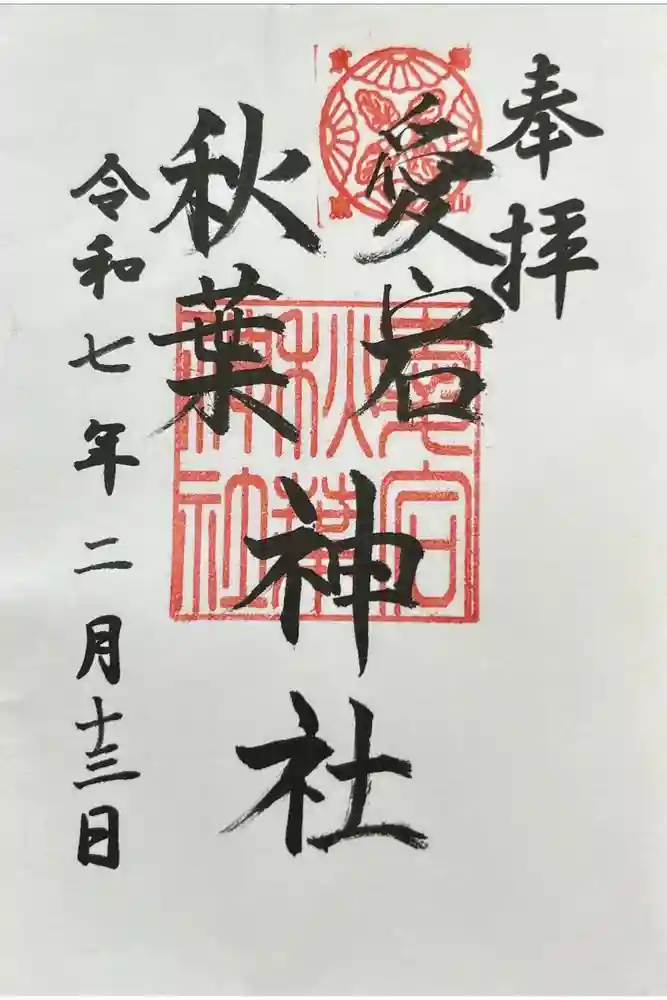 奉拝
愛宕
秋葉
神社
令和七年二月十三日
愛宕
秋葉
神社